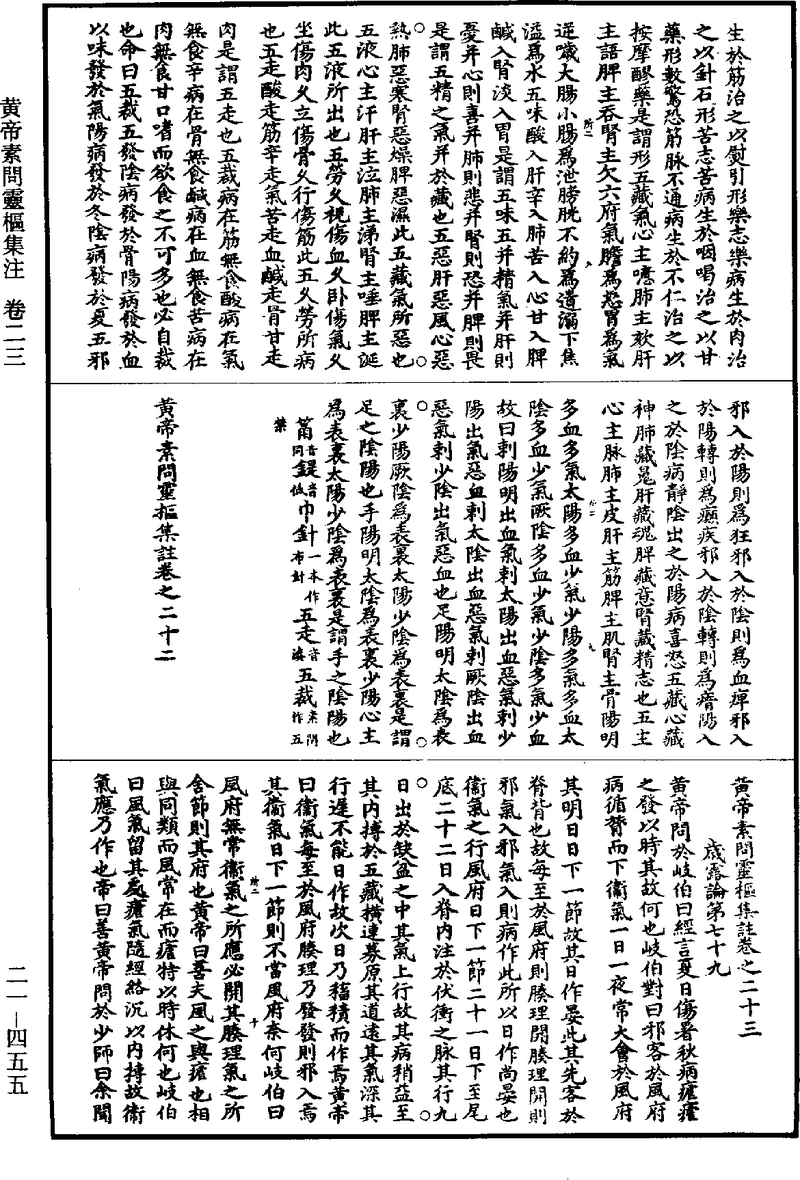 生於筋治之以熨引形樂志樂病生於肉治
之以針石形苦志苦病生於咽喝治之以甘
藥形數驚恐筋脉不通病生於不仁治之以
按摩醪藥是謂形五藏氣心主噫肺主欬肝
主語脾主吞腎主欠六府氣膽爲怒胃爲氣
逆噦大腸小腸爲泄膀胱不約爲遺溺下焦
溢爲水五味酸入肝辛入肺苦入心甘入脾
鹹入腎淡入胃是謂五味五并精氣并肝則
憂并心則喜并肺則悲并腎則恐并脾則畏
是謂五精之氣并於藏也五惡肝惡風心惡
熱肺惡寒腎惡燥脾惡濕此五藏氣所惡也
五液心主汗肝主泣肺主涕腎主唾脾主涎
此五液所出也五勞久視傷血久卧傷氣久
坐傷肉久立傷骨久行傷筋此五久勞所病
也五走酸走筋辛走氣苦走血鹹走骨甘走
肉是謂五走也五裁病在筋無食酸病在氣
無食辛病在骨無食鹹病在血無食苦病在
肉無食甘口嗜而欲食之不可多也必自裁
也命曰五裁五發陰病發於骨陽病發於血
以味發於氣陽病發於冬陰病發於夏五邪
邪入於陽則爲狂邪入於陰則爲血痺邪入
於陽轉則爲癲疾邪入於陰轉則爲瘖陽入
之於陰病靜陰出之於陽病喜怒五藏心藏
神肺藏魄肝藏魂脾藏意腎藏精志也五主
心主脉肺主皮肝主筋脾主肌腎主骨陽明
多血多氣太陽多血少氣少陽多氣多血太
陰多血少氣厥陰多血少氣少陰多氣少血
故曰刺陽明出血氣刺太陽出血惡氣刺少
陽出氣惡血刺太陰出血惡氣刺厥陰出血
惡氣刺少陰出氣惡血也足陽明太陰爲表
裏少陽厥陰爲表裏太陽少陰爲表裏是謂
足之陰陽也手陽明太陰爲表裏少陽心主
爲表裏太陽少陰爲表裏是謂手之陰陽也
音同鍉音低巾針一本作布針五走音奏五裁素問作五
禁
黃帝素問靈樞集註卷之二十二
黃帝素問靈樞集註卷之二十三
歲露論第七十九
黃帝問於岐伯曰經言夏日傷暑秋病瘧瘧
之發以時其故何也岐伯對曰邪客於風府
病循膂而下衞氣一日一夜常大會於風府
其明日日下一節故其日作晏此其先客於
脊背也故每至於風府則腠理開腠理開則
邪氣入邪氣入則病作此所以日作尚晏也
衞氣之行風府日下一節二十一日下至尾
底二十二日入脊内注於伏衝之脉其行九
日出於缺盆之中其氣上行故其病稍益至
其内搏於五藏橫連募原其道遠其氣深其
行遲不能日作故次日乃稸積而作焉黃帝
曰衞氣每至於風府腠理乃發發則邪入焉
其衞氣日下一節則不當風府奈何岐伯曰
風府無常衞氣之所應必開其腠理氣之所
舍節則其府也黃帝曰善夫風之與瘧也相
與同類而風常在而瘧特以時休何也岐伯
曰風氣留其處瘧氣隨經絡沉以内搏故衞
氣應乃作也帝曰善黃帝問於少師曰余聞
黄帝素問靈樞集注 卷二三
二一—四五五